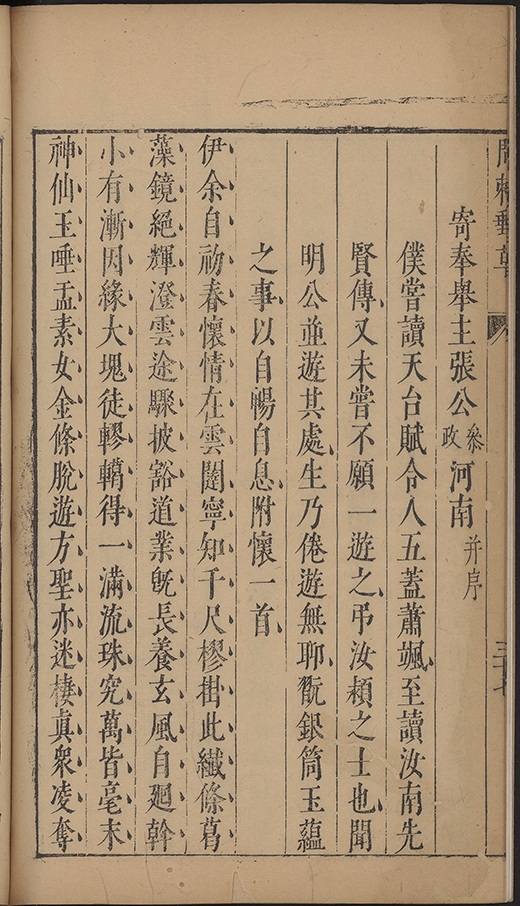 寄奉舉主張公參政河南并序
僕嘗讀天台賦令人五蓋蕭颯至讀汝南先
賢傳又未嘗不願一遊之弔汝穎之士也聞
明公並遊其處生乃倦遊無聊翫銀筒玉蘊
之事以自暢自息附懷一首
伊余自礿春懷情在雲闥寧知千尺樛掛此纖條葛
藻鏡絕輝澄雲途驟披豁道業旣長養玄風自廻斡
小有漸因緣大塊徒轇轕得一滿流珠究萬皆毫末
神仙玉唾盂素女金條脫遊方聖亦迷棲眞衆凌奪
三十七